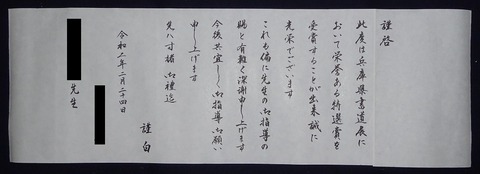 謹啓
此度は兵庫県書道展に
おいて栄誉ある特選賞を
受賞することが出来誠に
光栄でございます
これも偏に先生の御指導の
賜と有難く深謝申し上げます
今後共宜しく御指導御願い
申し上げます
先ハ寸楮御禮迄
謹白
令和二年二月二十四日
先生